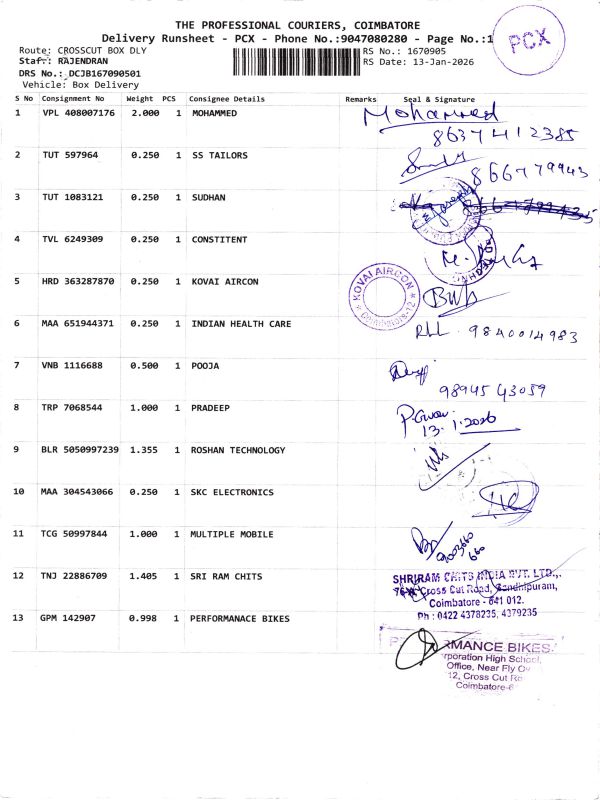 THE PROFESSIONAL COURIERS, COIMBATORE
Delivery Runsheet - PCX - Phone No.:9047080280 - Page No.:1
PCX
Route: CROSSCUT BOX DLY
RS No.: 1670905
Staff: RAJENDRAN
RS Date: 13-Jan-2026
DRS No.: DCJB167090501
Vehicle: Box Delivery
S No Consignment No Weight PCS Consignee Details Remarks Seal & Signature
1 VPL 408007176 2.000 1 MOHAMMED Mohammed
8637412385
2 TUT 597964 0.250 1 SS TAILORS
866779943
3 TUT 1083121 0.250 1 SUDHAN
4 TVL 6249309 0.250 1 CONSTITENT
5 HRD 363287870 0.250 1 KOVAI AIRCON KOVAI AIRCON
6 MAA 651944371 0.250 1 INDIAN HEALTH CARE 9840014983
7 VNB 1116688 0.500 1 POOJA
98945 43059
8 TRP 7068544 1.000 1 PRADEEP
13.1.2026
9 BLR 5050997239 1.355 1 ROSHAN TECHNOLOGY
10 MAA 304543066 0.250 1 SKC ELECTRONICS
11 TCG 50997844 1.000 1 MULTIPLE MOBILE
12 TNJ 22886709 1.405 1 SRI RAM CHITS SHRIRAM CHITS INDIA PVT. LTD.,
Cross Cut Road, Gandhipuram,
Coimbatore - 641 012.
Ph : 0422 4378235, 4379235
13 GPM 142907 0.998 1 PERFORMANACE BIKES
RMANCE BIKES
rporation High School,
Office, Near Fly
12, Cross Cut
Coimbatore-6